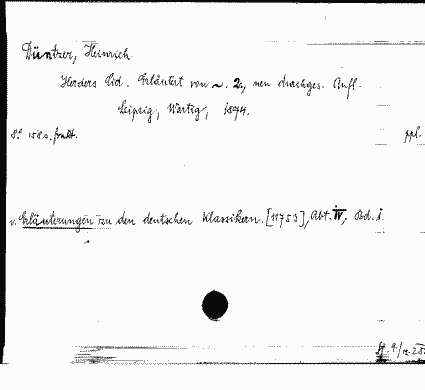 Düntzer, Heinrich
Herders Cid. Erläutert von ~. 2., neu durchges. Aufl.
Leipzig, Wartig, 1894.
8° 158 S. ppl.
v. Erläuterungen zu den deutschen Klassikern. [11753], Abt. IV, Bd. 1.